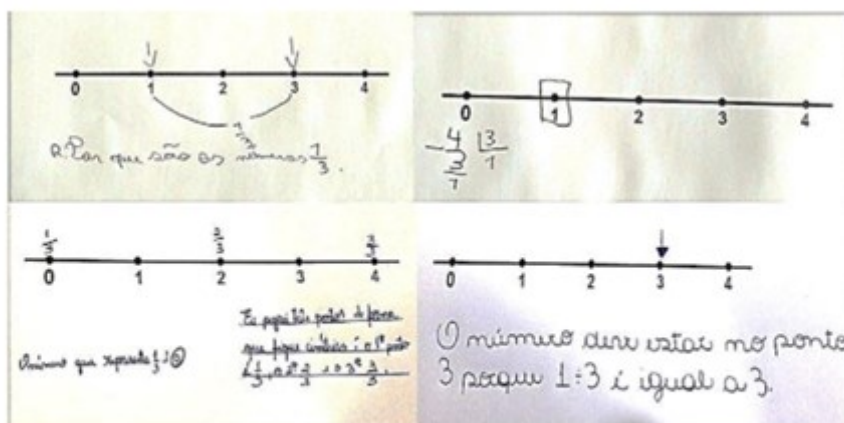 0 1 2 3 4
R: Por que são os números 1/3.
0 1 2 3 4
4 3
1
1/3 2/3 3/3
0 1 2 3 4
O número que representa 1/3 é 0
Eu peguei três pontos de forma
que fique é o 1º ponto
é 1/3, o 2º 2/3 e o 3º 3/3.
0 1 2 3 4
O número deve estar no ponto
3 porque 1÷3 é igual a 3.